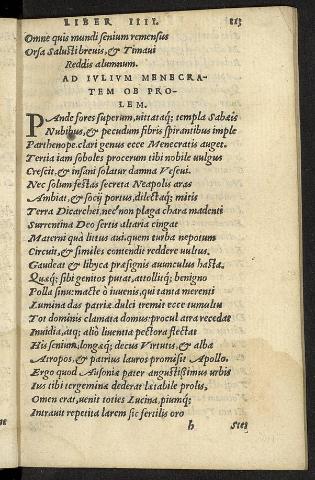 LIBER IIII.
Omne quis mundi senium remensus
Orsa Salusti brevis, & Timaui
Reddis alumnum.
AD IVLIVM MENECRA-
TEM OB PRO-
LEM.
PAnde fores superum, uittataq; templa Sabæis
Nubibus, & pecudum fibris spirantibus imple
Parthenope. clari genus ecce Menecratis auget.
Tertia iam soboles procerum tibi nobile uulgus
Crescit, & insani solatur damna Veseui.
Nec solum festas secreta Neapolis aras
Ambiat, & socij portus, dilectaq; mitis
Terra Dicarchei, nec non plaga chara madenti
Surrentina Deo sertis altaria cingat
Materni quà littus aui, quem turba nepotum
Circuit, & similes contendit reddere uultus.
Gaudeat & libyca præsignis auunculus hasta.
Quæq; sibi genitos putat, attollitq; benigno
Polla sinu: macte ò iuuenis, qui tanta merenti
Lumina das patriæ dulci tremit ecce tumultu
Tot dominis clamata domus: procul atra recedat
Inuidia, atq; aliò liuentia pectora flectat
His senium, longæq; decus Virtutis, & alba
Atropos, & patrius lauros promisit Apollo.
Ergo quod Ausoniæ pater angustissimus urbis
Ius tibi tergeminæ dederat lætabile prolis,
Omen erat, uenit toties Lucina, piumq;
Intrauit repetita larem sic fertilis oro
h